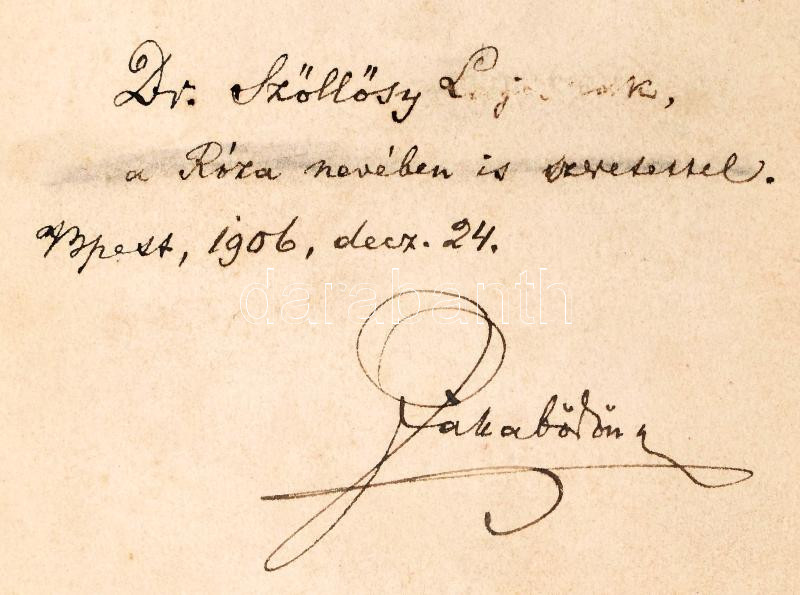 Dr. Szöllősy
a Róza nevében is szeretettel.
Bpest, 1906, decz. 24.
darabanth
Jakab Ödön